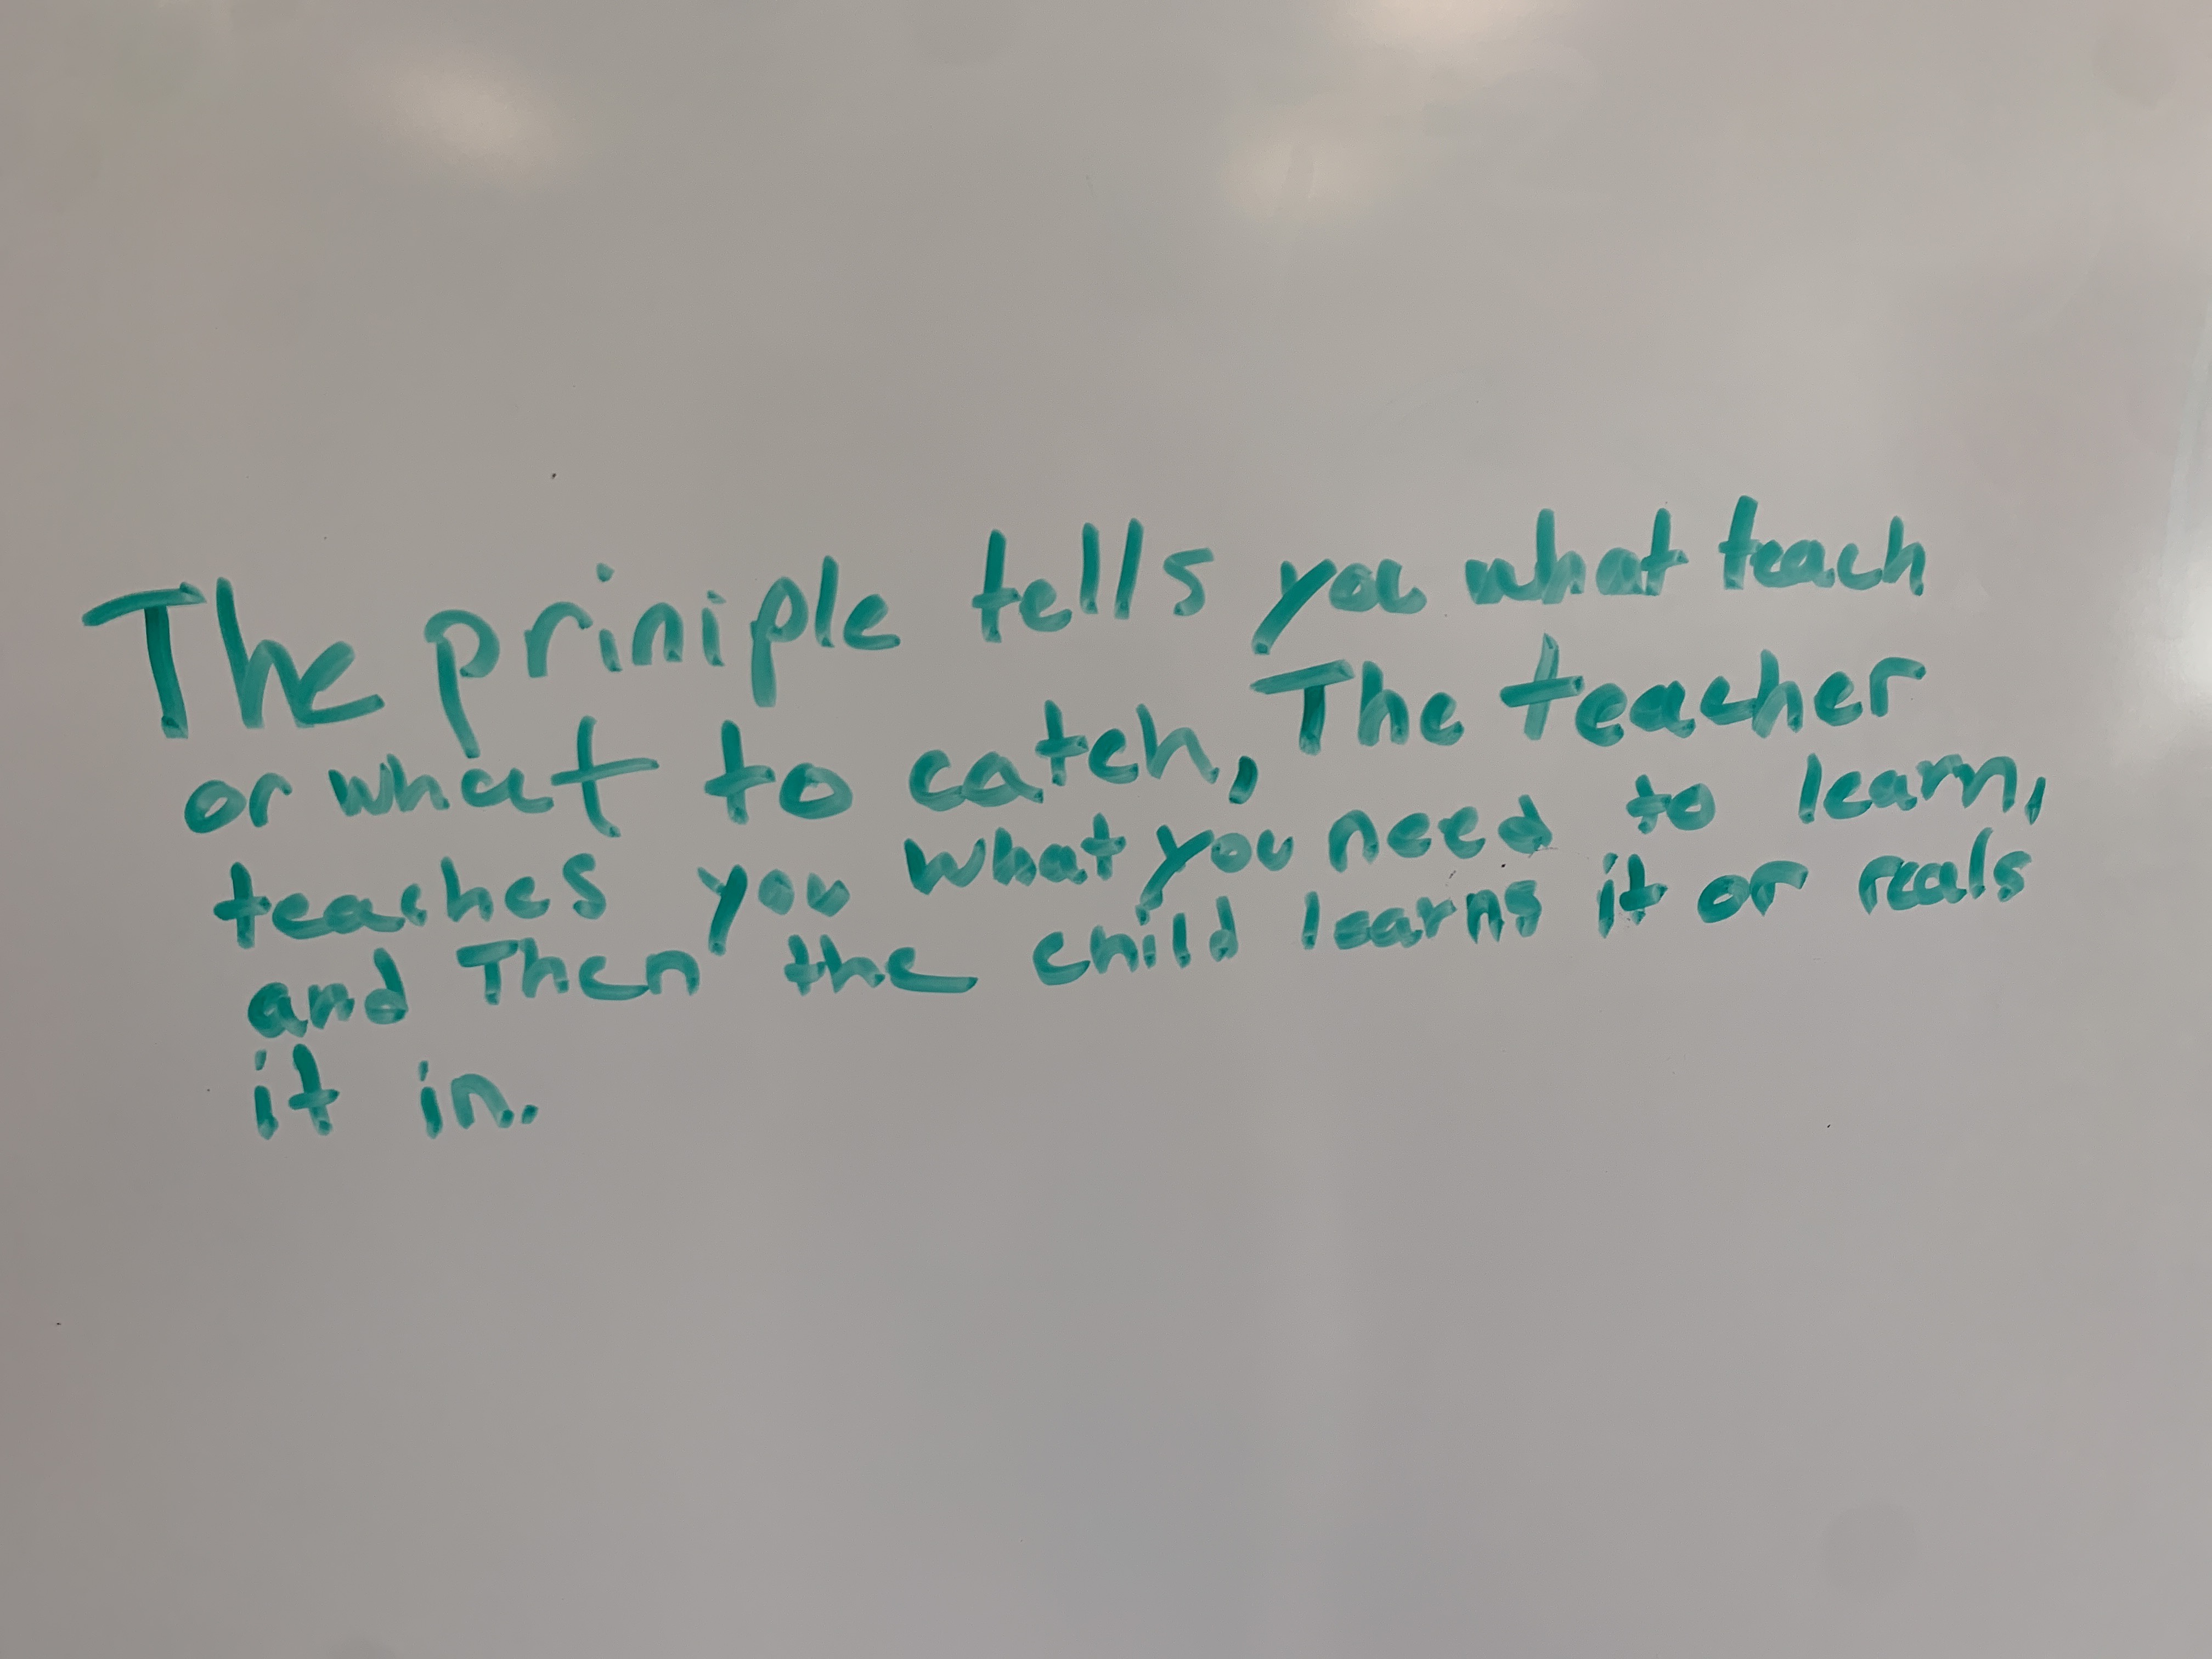 The priniple tells you what teach
or what to catch, The teacher
teaches you what you need to learn,
and Then the child learns it or reals
it in.